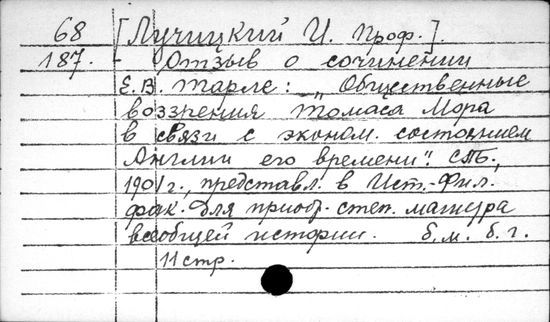 68 [Лучицкий И. Проф.].
187. - Отзыв о сочинении
Е.В. Тарле: „Общественные
воззрения Томаса Мора
в связи с эконом. состоянием
Англии его времени“. СПБ.,
1901г., представл. в Ист.-Фил.
фак. для приобр. степ. магистра
всеобщей истории. б.м. б.г.
11 стр.